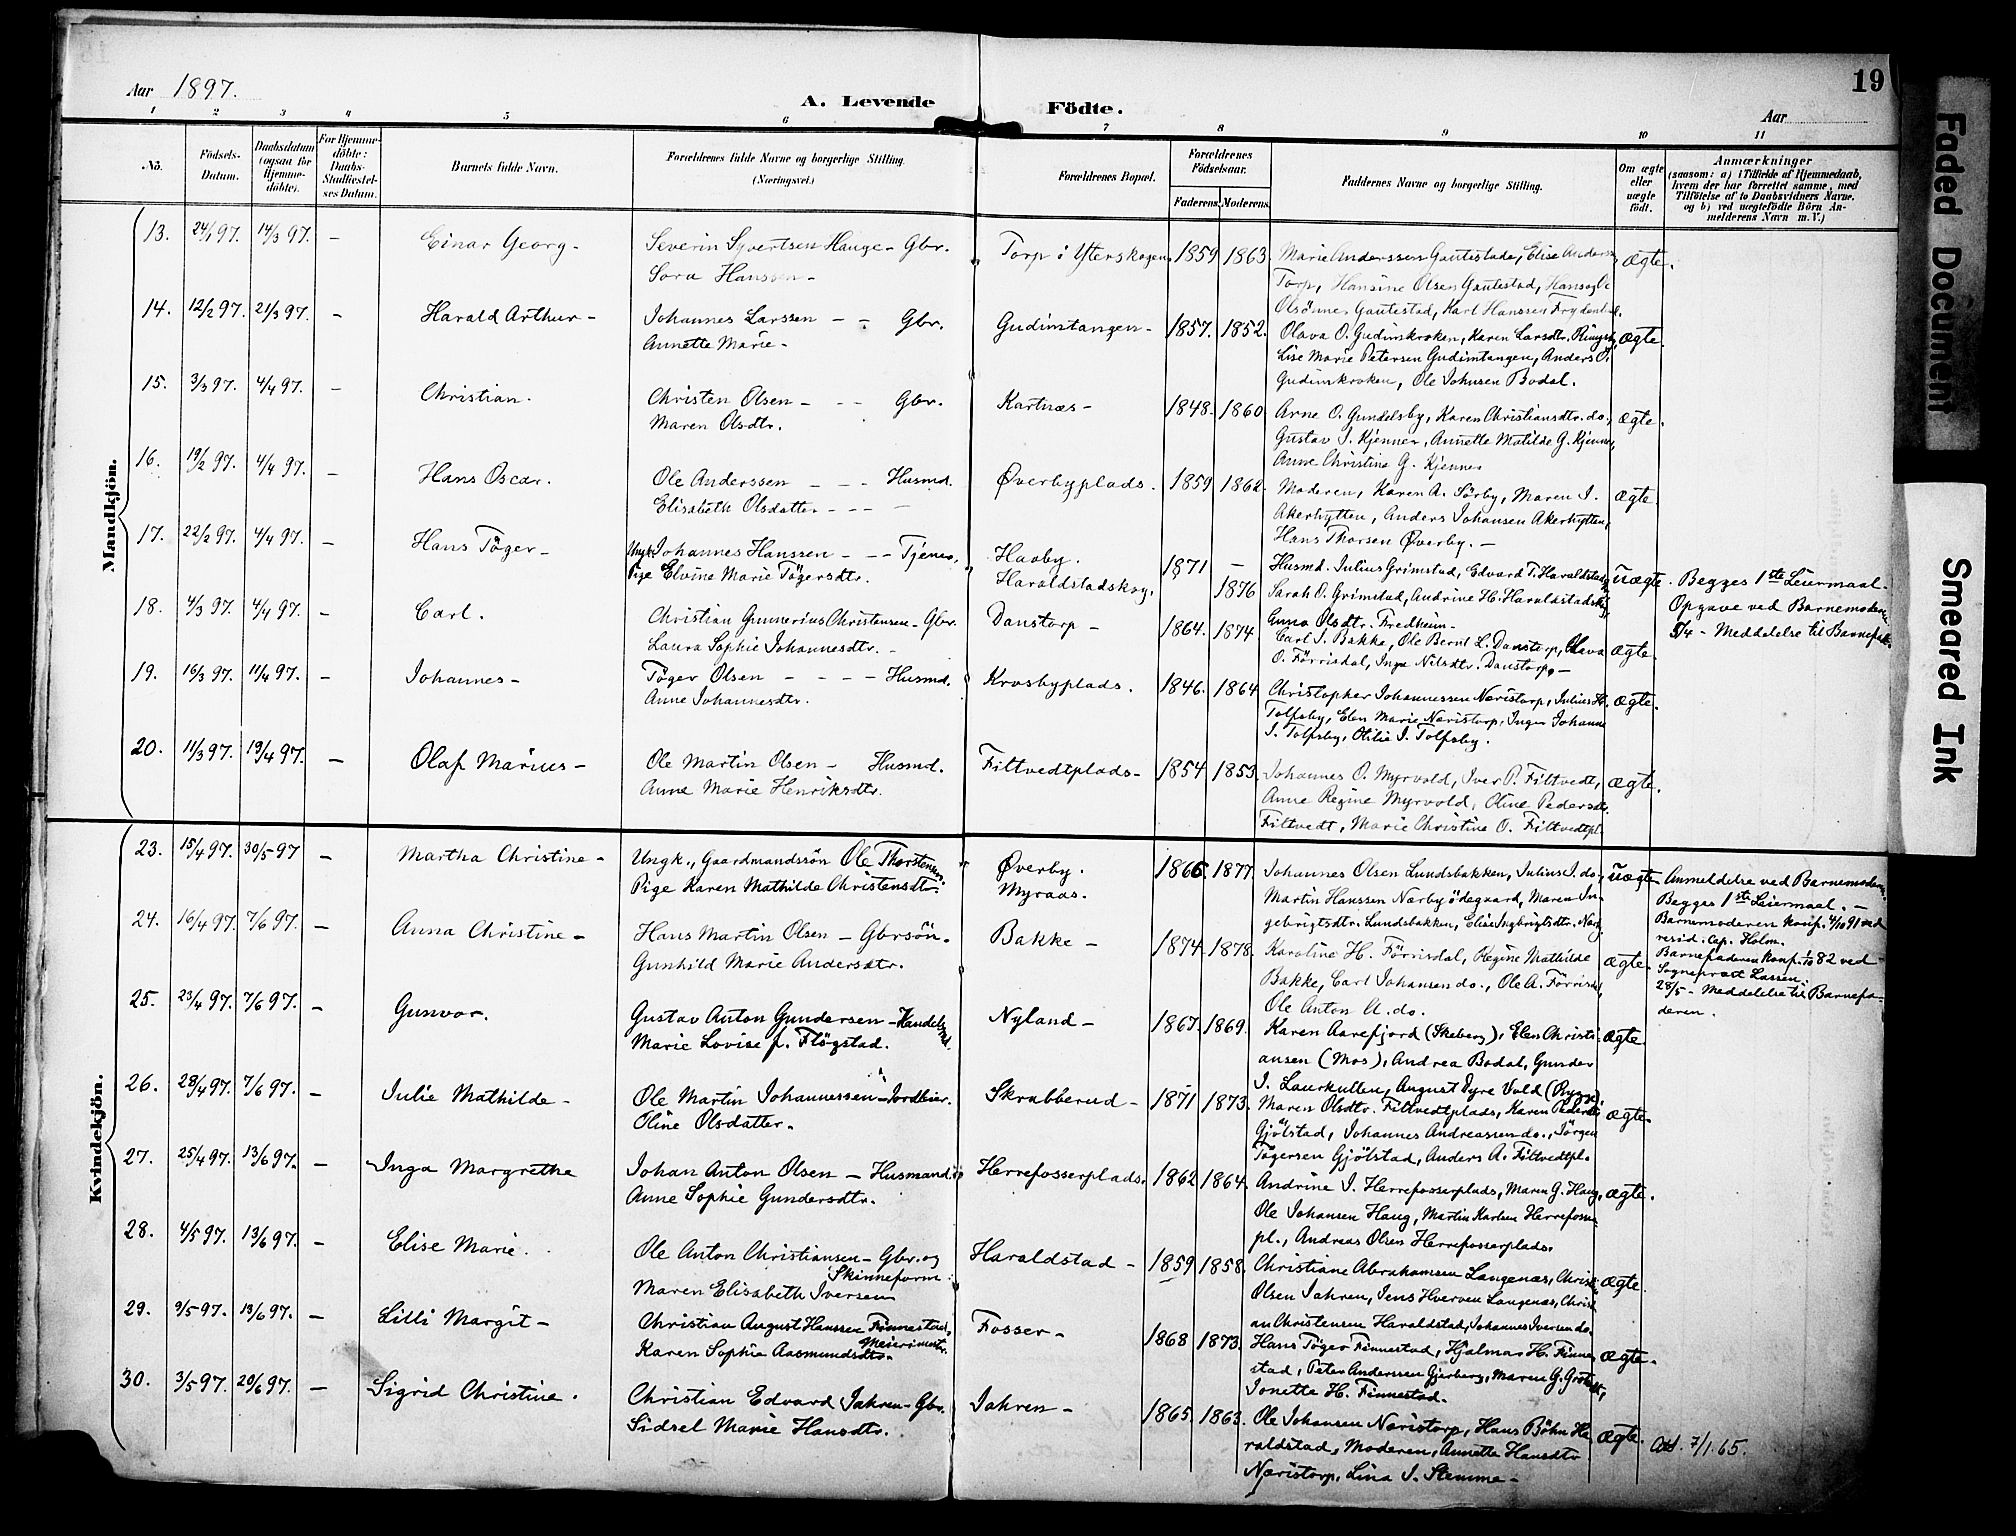 19
Aar 1897.
A. Levende Födte.
Aar
1 2 3 4 5 6 7 8 9 10 11
No. Födsels-Datum. Daabsdatum (ogsaa för Hjemme-döbte). For Hjemme-döbte: Daabs-Stadfæstel-ses Datum. Barnets fulde Navn. Forældrenes fulde Navne og borgerlige Stilling. (Næringsvei.) Forældrenes Bopæl. Forældrenes Födselsaar. Faderens. Moderens. Faddernes Navne og borgerlige Stilling. Om ægte eller uægte födt. Anmærkninger (saasom: a) i Tilfælde af Hjemmedaab, hvem der har forrettet samme, med Tilföielse af to Daabsvidners Navne, og b) ved uægtefödte Börn An-melderens Navn m. V.)
Mandkjön.
13. 24/1 97. 14/3 97. – Einar Georg – Severin Syvertsen Hauge – Gbr. Torp i Ytterskogen 1859 1863. Marie Anderssen Gautestad, Elise Anderss. ægte.
Sora Hanssen – Torp, Hansine Olsen Gautestad, Hans
Olsönnes Gautestad, Karl Hanssen Frydenl.
14. 12/2 97. 21/3 97. – Harald Arthur – Johannes Larssen – – Gbr. Gudimtangen – 1857. 1852. Olava O. Gudimkroken, Karen Larsdtr. Ringst. ægte.
Annette Marie – Lise Marie Petersen Gudimtangen, Anders O.
Gudimkroken, Ole Johnsen Bodal.
15. 3/3 97. 4/4 97. – Christian. Christen Olsen – – – Gbr. Kartnæs – 1848. 1860. Arne O. Gundelsby, Karen Christiansdtr. do., ægte.
Maren Olsdtr. Gustav J. Kjennes, Annette Matilde G. Kjennes,
Anne Christine G. Kjennes
16. 19/2 97. 4/4 97. – Hans Oscar. Ole Anderssen – – – Husmd. Øverbyplads. 1859 1862. Moderen, Karen A. Sörby, Maren J. ægte.
Elisabeth Olsdatter – – – Akerhytten, Anders Johansen Akerhytten,
Hans Thorsen Øverby. –
17. 22/2 97. 4/4 97. – Hans Töger – Ungk. Johannes Hanssen – – Tjener, Haaby. 1871 – Husmd. Julius Grimstad, Edvard T. Haraldstadsk. uægte. Begges 1ste Leiermaal –
Pige Elvine Marie Tögersdtr. Haraldstadskog. 1876 Sarah O. Grimstad, Andrine H. Haraldstadsk. Opgave ved Barnemoderen
Anna Olsdtr. Fredheim – 5/4 – Meddelelse til Barnefad.
18. 4/3 97. 4/4 97. – Carl. Christian Gunnerius Christensen – Gbr. Danstorp – 1864. 1874. Carl J. Bakke, Ole Bernt L. Danstorp, Olava ægte.
Laura Sophie Johannesdtr. – O. Förrisdal, Inga Nilsdtr. Danstorp. –
19. 16/3 97. 11/4 97. – Johannes – Töger Olsen – – – – Husmd. Krosbyplads. 1846. 1864 Christopher Johannessen Næristorp, Julius H. ægte.
Anne Johannesdtr. Tolfsby, Elen Marie Næristorp, Inger Johanne
J. Tolfsby, Otilie J. Tolfsby.
20. 11/3 97. 19/4 97. – Olaf Marius – Ole Martin Olsen – Husmd. Filtvedtplads – 1854 1853. Johannes O. Myrvold, Iver P. Filtvedt, ægte.
Anne Marie Henriksdtr. Anne Regine Myrvold, Oline Pedersdtr.
Filtvedt, Marie Christine O. Filtvedtpl.
Kvindekjön.
23. 15/4 97. 30/5 97 – Martha Christine – Ungk., Gaardmandssön Ole Thorstensen. Øverby. 1866. 1877. Johannes Olsen Lundsbakken, Julius J. do., uægte. Anmeldelse ved Barnemoderen.
Pige Karen Mathilde Christensdtr. Myraas. Martin Hanssen Nærby ödegaard, Maren In- Begges 1ste Leiermaal. –
gebrigtsdtr. Lundsbakken, Elise Ingbrigtsdtr. Nærb. Barnemoderen konf. 4/10 91 ved
resid. Cap. Holm.
24. 16/4 97. 7/6 97. – Anna Christine – Hans Martin Olsen – Gbrsön. Bakke – 1874. 1878. Karoline H. Förrisdal, Regine Mathilde ægte. Barnefaderen konf. 1/10 82 ved
Gunhild Marie Andersdtr. Bakke, Carl Johansen do., Ole A. Förrisdal, Sognepræst Lassen.
Ole Anton A. do. 28/5 – Meddelelse til Barnefa-
deren.
25. 23/4 97. 7/6 97. – Gunvor. Gustav Anton Gundersen – Handelsmd. Nyland – 1867. 1869. Karen Aarefjord (Skeberg), Elen Christi- ægte.
Marie Lovise f. Flögstad. ansen (Mos), Andrea Bodal, Gunder
J. Laurkullen, August Dyre Vold (Rygge).
26. 28/4 97. 7/6 97. – Julie Mathilde – Ole Martin Johannessen – Jordbier. Skrabberud – 1871 1873. Maren Olsdtr. Filtvedtplads, Karen Pedersdtr. ægte.
Oline Olsdatter. Gjölstad, Johannes Andreassen do., Jörgen
Tögersen Gjölstad, Anders A. Filtvedtpl.
27. 25/4 97. 13/6 97. – Inga Margrethe Johan Anton Olsen – Husmand Herrefosserplads. 1862 1864. Andrine J. Herrefosserplads, Maren G. Haug, ægte.
Anne Sophie Gundersdtr. Ole Johansen Haug, Martin Karlsen Herrefosser
pl., Andreas Olsen Herrefosserplads.
28. 4/5 97. 13/6 97. – Elise Marie. Ole Anton Christiansen – Gbr. og Haraldstad – 1859 1858. Christiane Abrahamsen Langenæs, Christ. ægte.
Skinneform. Olsen Jahren, Jens Hverven Langenæs, Christi
Maren Elisabeth Iversen an Christensen Haraldstad, Johannes Iversen do.
29. 9/5 97. 13/6 97. – Lilli Margit – Christian August Hanssen Finnestad, Fosser – 1868 1873. Hans Töger Finnestad, Hjalmar H. Finne- ægte.
Meierimester. stad, Peter Anderssen Gjerberg, Maren G.
Karen Sophie Aasmundsdtr. Jonette H. Finnestad.
30. 3/5 97. 20/6 97. – Sigrid Christine. Christian Edvard Jahren – Gbr. Jahren – 1865. 1863. Ole Johansen Næristorp, Hans Böhn Ha- ægte. Att. 7/1.65.
Sidsel Marie Hansdtr. raldstad, Moderen, Annette Hansdtr.
Næristorp, Lina J. Stemme –
Faded Document
Smeared Ink